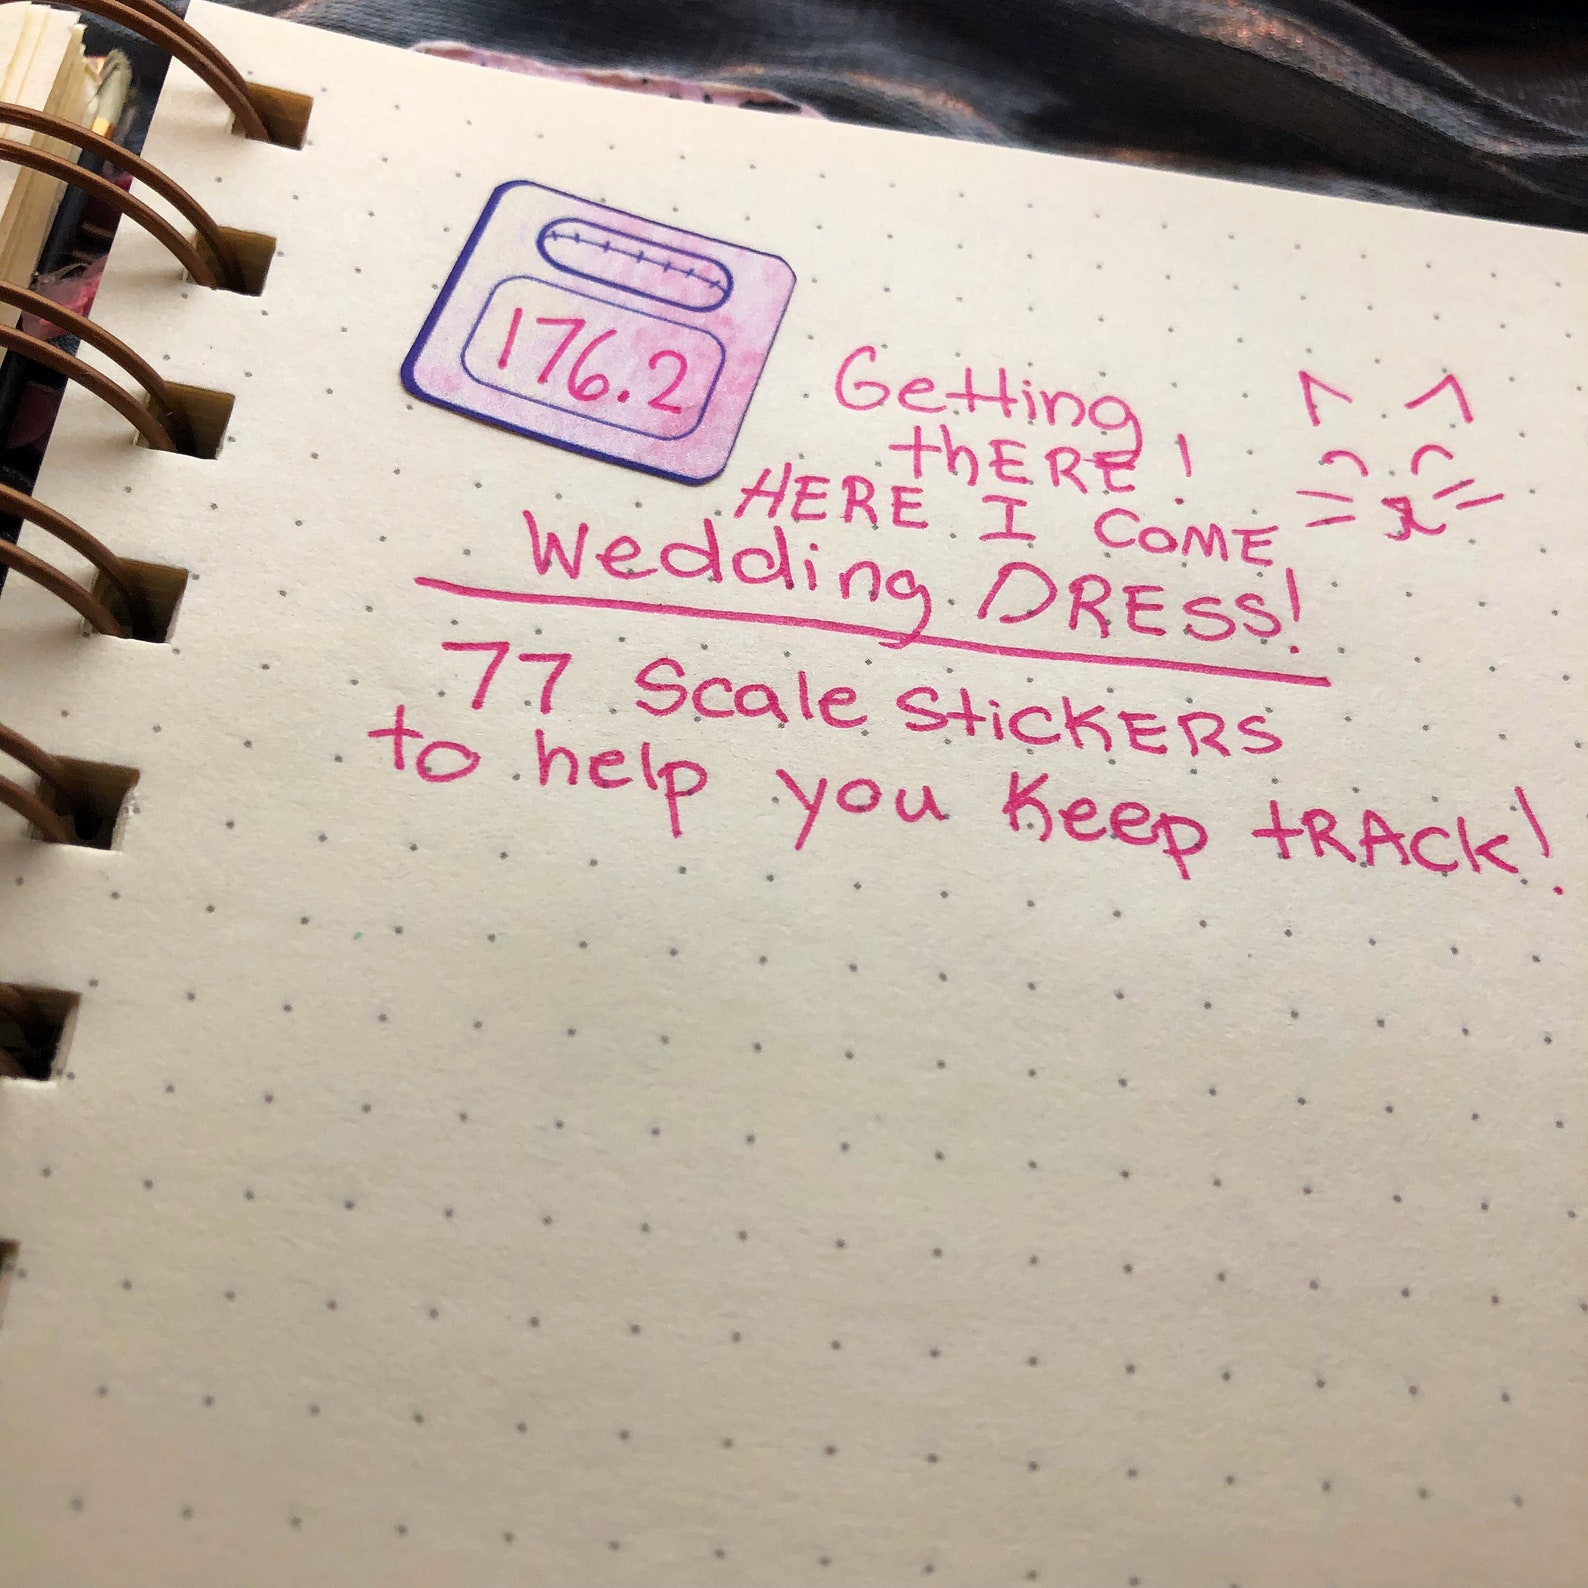 176.2
Getting
thERE!
HERE I COME
Wedding DRESS!
77 Scale StiCKERS
to help you Keep tRACK!